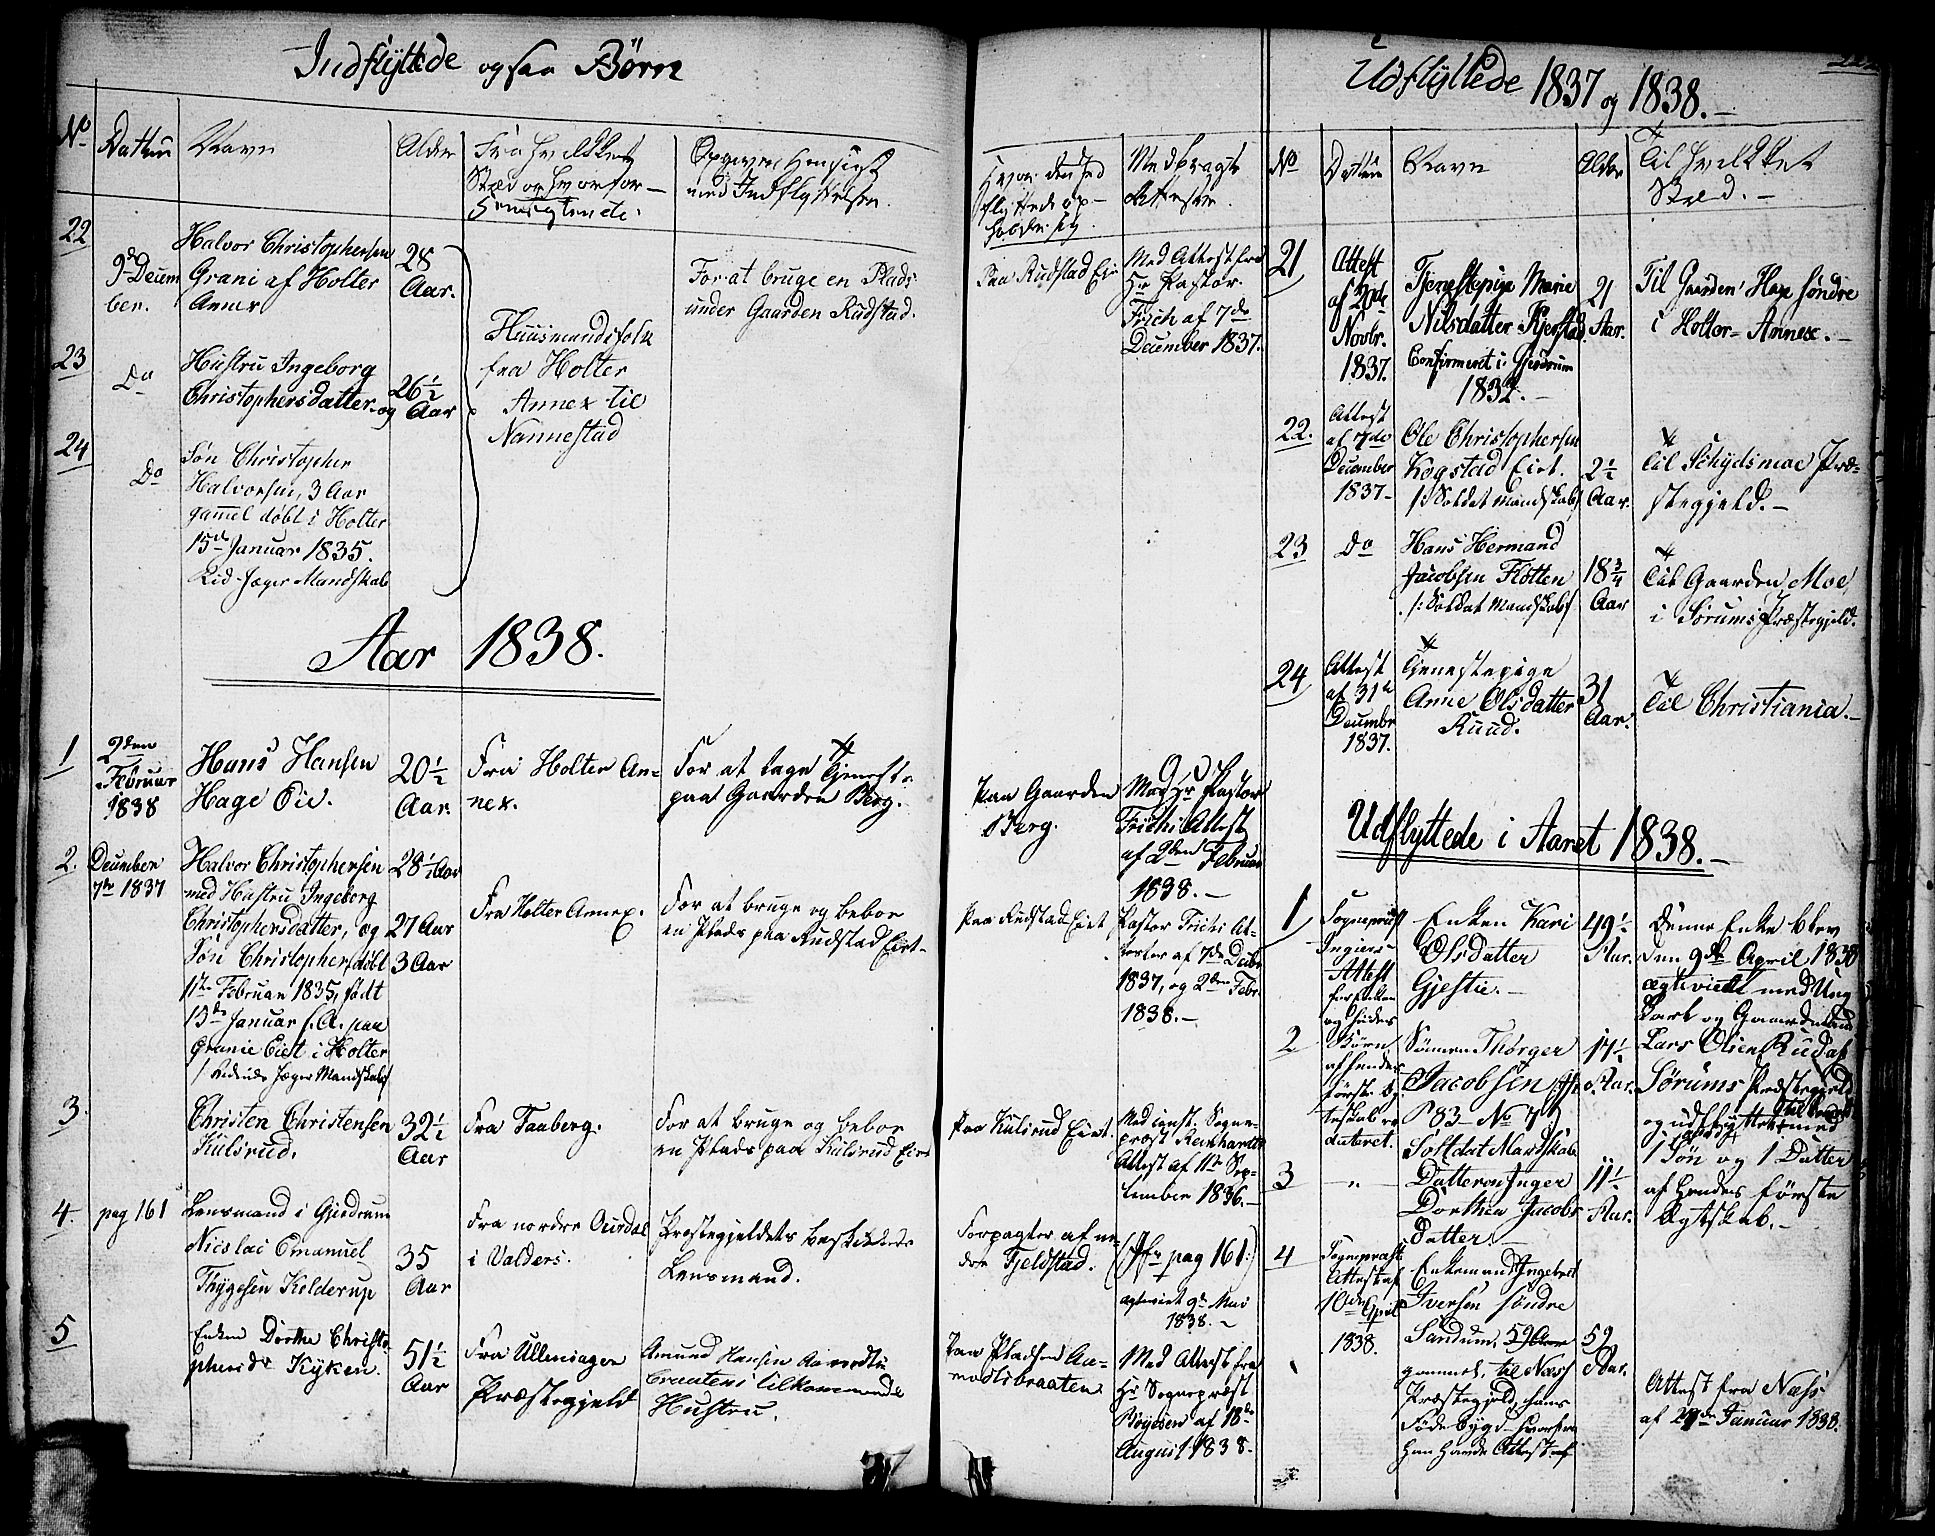 Indflyttede ogsaa Børn
No
Datum
Navn
Alder
Fra hvilket
Stæd og hvorfor
Opgiven Hensigt
med Indflyttelsen.
Hvor den ind
flyttede op-
holder sig
Medbragte
Atteste.
22
9de Decem
ber.
Halvor Christophersen
Grani af Holter
Annex
28
Aar.
Huusmandsfolk
fra Holter
Annex til
Nannestad
For at bruge en Plads
under Gaarden Rudstad.
Paa Rudstad Eie
Med Attest fra
Hr Pastor
Frich af 7de
December 1837.
23
Do
Hustru Ingeborg
Christophersdatter og
26½
Aar
24
Do
Søn Christopher
Halvorsen, 3 Aar
gammel døbt i Holter
15de Januar 1835.
Lid. Jæger Mandskab
Aar 1838.
1
2den
Februar
1838
Hans Hansen
Hage Eie.
20½
Aar.
Fra Holter An-
nex.
For at tage Tjeneste
paa Gaarden Berg.
Paa Gaarden
Berg.
Med Hr Pastor
Frichs Attest
af 2den Februar
1838.-
2.
December
7de 1837
Halvor Christophersen
med Hustru Ingeborg
Christophersdatter, og
Søn Christopher, døbt
11te Februar 1835, født
15de Januar s. A. paa
Granie Eiet i Holter
/ Lidende Jæger Mandskab/
28½ Aar
27 Aar
3 Aar
Fra Holter Annex.
For at bruge og beboe
en Plads paa Rudstad Eiet-
Paa Rudstad Eiet
Pastor Frichs At-
tester af 7de Decbr
1837, og 2den Febr.
1838.-
3.
Christen Christensen
Kulsrud.
32½
Aar
Fra Faaberg.
For at bruge og beboe
en Plads paa Kulsrud Eie
Paa Kulsrud Eiet.
Med const. Sogne-
prost Reinhardts
Attest af 11te Sep-
tember 1836.-
4.
pag 161
Lensmand i Gjerdrum
Nicolai Emanuel
Thygesen Kolderup
35
Aar
Fra nordre Ourdal
i Valders.
Præstegjeldets beskikkede
Lensmand.
Forpagter af ne-
dre Fjeldstad.
(Jfr pag 161:)
ægteviet 9de Mai
1838.-
5
Enken Dorthe Christo-
phersdr Kyken.
51½
Aar
Fra Ullensager
Præstegjeld
Amund Hansen Aamodts
braatens tilkommende
Hustru.
Paa Pladsen Aa-
modtsbraaten.
Med Attest fra
Hr Sognepræst
Bøydsen af 18de
August 1838.
Udflyttede 1837 og 1838.-
No
Datum
Navn
Alder
Til hvilket
Stæd.-
21
Attest
af 20de
Novbr.
1837.
Tjenestepige Marie
Nilsdatter Kjerstad.
Confirmeret i Gjerdrum
1832.-
21
Aar.
Til Gaarden Hage søndre
i Holter-Annex.-
22.
Attest
af 7de
December
1837-
Ole Christophersen
Kogstad Eiet.
/: Soldat Mandskab/
2½
Aar.
Til Schydsmoe Præ-
stegjeld.-
23
Do
Hans Hermand
Jacobsen Flotten
/: Soldat Mandskab/
18¾
Aar
Til Gaarden Moe
i Sørums Præstegjeld.
24
Attest
af 31te
Decembr
1837.
Tjenestepige
Anne Olsdatter
Ruud.
31
Aar.
Til Christiania.-
Udflyttede i Aaret 1838.-
1
Sognepræst
Attest
for Enken
og hendes
Børn
af hendes
første Æg-
teskab er
dateret.
Enken Kari
Olsdatter
Gjestie.-
49½
Aar.
Denne Enke blev
den 9de April 1838
ægteviet med Ung
Karl og Gaardmand
Lars Olsen Rud af
Sørums Præstegjeld
og udflyttet med
1 Søn og 1 Datter
af hendes første
Ægtskab.-
2
Sønnen Thorger
Jacobsen
P 83 - No 7
Soldat Mandskab
17½
Aar.
3
"
Datteren Inger
Dorthea Jacobs
datter.
11½
Aar.
4
Sognepræst
Attest af
10de April
1838.
Enkemand Ingebret
Iversen søndre
Sandum, 59 Aar
gammel, til Næss
Præstegjeld, hans
Fødebygd - hvorfra
han havde Attest af
59
Aar.
Attest fra Næss
af 27de Januar 1838.